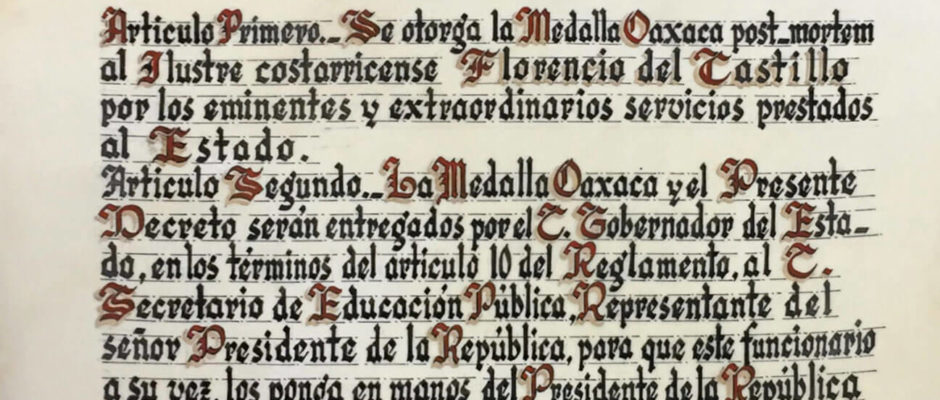 Artículo Primero._ Se otorga la Medalla Oaxaca post_mortem
al Ilustre costarricense Florencio del Castillo
por los eminentes y extraordinarios servicios prestados
al Estado.
Artículo Segundo._ La Medalla Oaxaca y el Presente
Decreto serán entregados por el C. Gobernador del Esta_
do, en los términos del artículo 10 del Reglamento, al C.
Secretario de Educación Pública, Representante del
señor Presidente de la República, para que este funcionario
a su vez, los ponga en manos del Presidente de la República